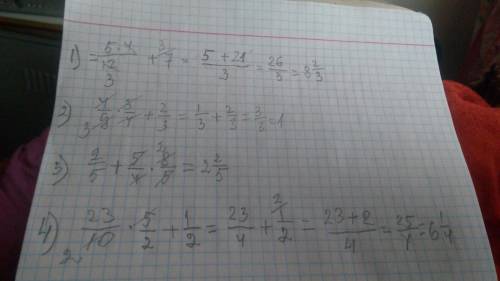 1) = 5·4/12 3 + 3/7 = 5+21/3 = 26/3 = 8 2/3
2) 3 4/9 · 3/4 + 2/3 = 1/3 + 2/3 = 3/3 = 1
3) 2/5 + 5/4 · 8/5 = 2 2/5
4) 23/10 2 · 5/2 + 1/2 = 23/4 + 2 1/2 = 23+2/4 = 25/4 = 6 1/4